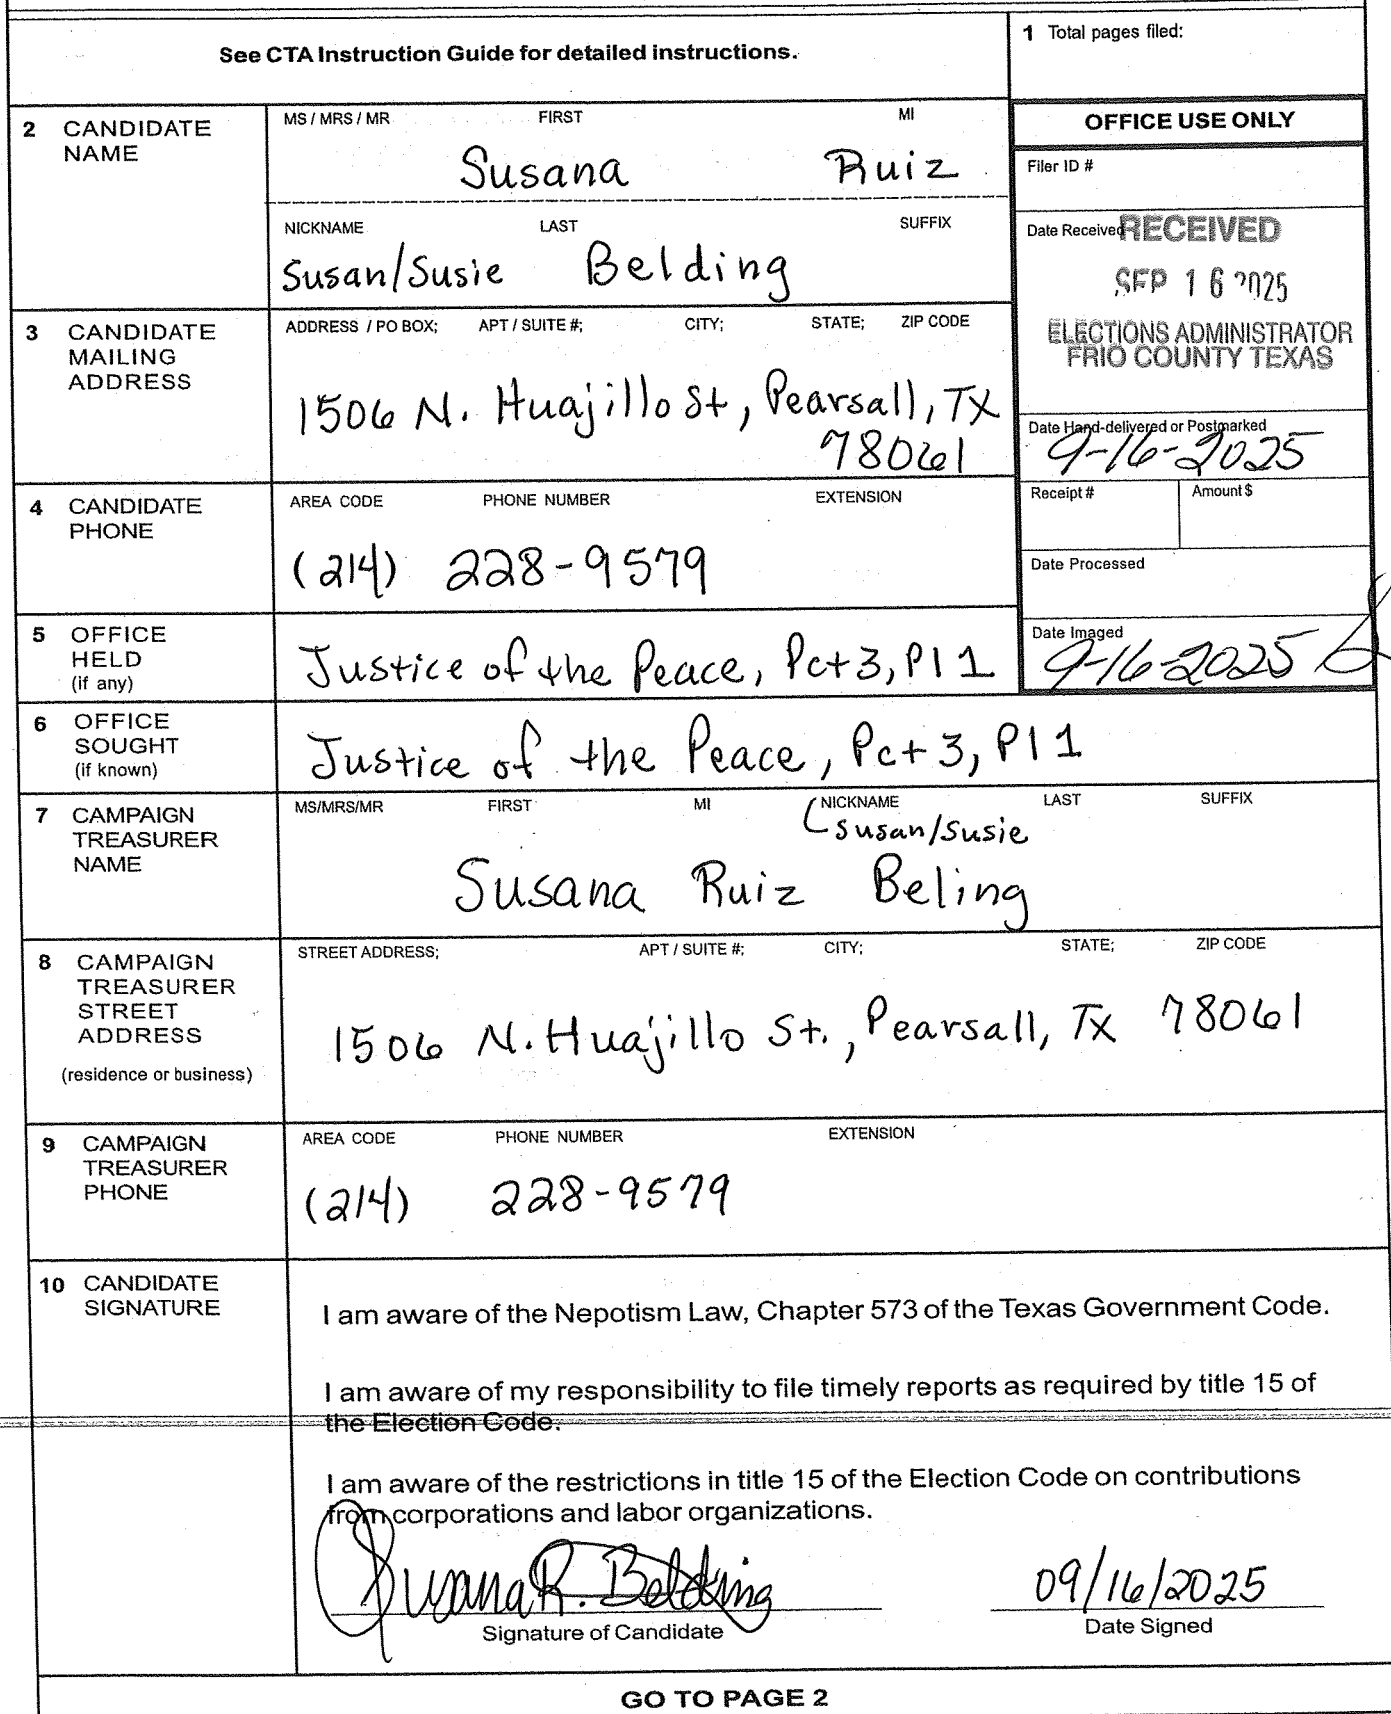 See CTA Instruction Guide for detailed instructions.
1 Total pages filed:
2 CANDIDATE NAME
MS / MRS / MR FIRST MI
Susana Ruiz
NICKNAME LAST SUFFIX
Susan/Susie Belding
OFFICE USE ONLY
Filer ID #
Date Received
RECEIVED
SEP 16 2025
ELECTIONS ADMINISTRATOR
FRIO COUNTY TEXAS
3 CANDIDATE MAILING ADDRESS
ADDRESS / PO BOX; APT / SUITE #; CITY; STATE; ZIP CODE
1506 N. Huajillo St, Pearsall, TX
78061
Date Hand-delivered or Postmarked
9-16-2025
4 CANDIDATE PHONE
AREA CODE PHONE NUMBER EXTENSION
(214) 228-9579
Receipt # Amount $
Date Processed
5 OFFICE HELD (if any)
Justice of the Peace, Pct 3, Pl 1
Date Imaged
9-16-2025
6 OFFICE SOUGHT (if known)
Justice of the Peace, Pct 3, Pl 1
7 CAMPAIGN TREASURER NAME
MS/MRS/MR FIRST MI NICKNAME LAST SUFFIX
Susan/Susie
Susana Ruiz Beling
8 CAMPAIGN TREASURER STREET ADDRESS
(residence or business)
STREET ADDRESS; APT / SUITE #; CITY; STATE; ZIP CODE
1506 N. Huajillo St., Pearsall, Tx 78061
9 CAMPAIGN TREASURER PHONE
AREA CODE PHONE NUMBER EXTENSION
(214) 228-9579
10 CANDIDATE SIGNATURE
I am aware of the Nepotism Law, Chapter 573 of the Texas Government Code.
I am aware of my responsibility to file timely reports as required by title 15 of
the Election Code.
I am aware of the restrictions in title 15 of the Election Code on contributions
from corporations and labor organizations.
Susana R. Belding 09/16/2025
Signature of Candidate Date Signed
GO TO PAGE 2